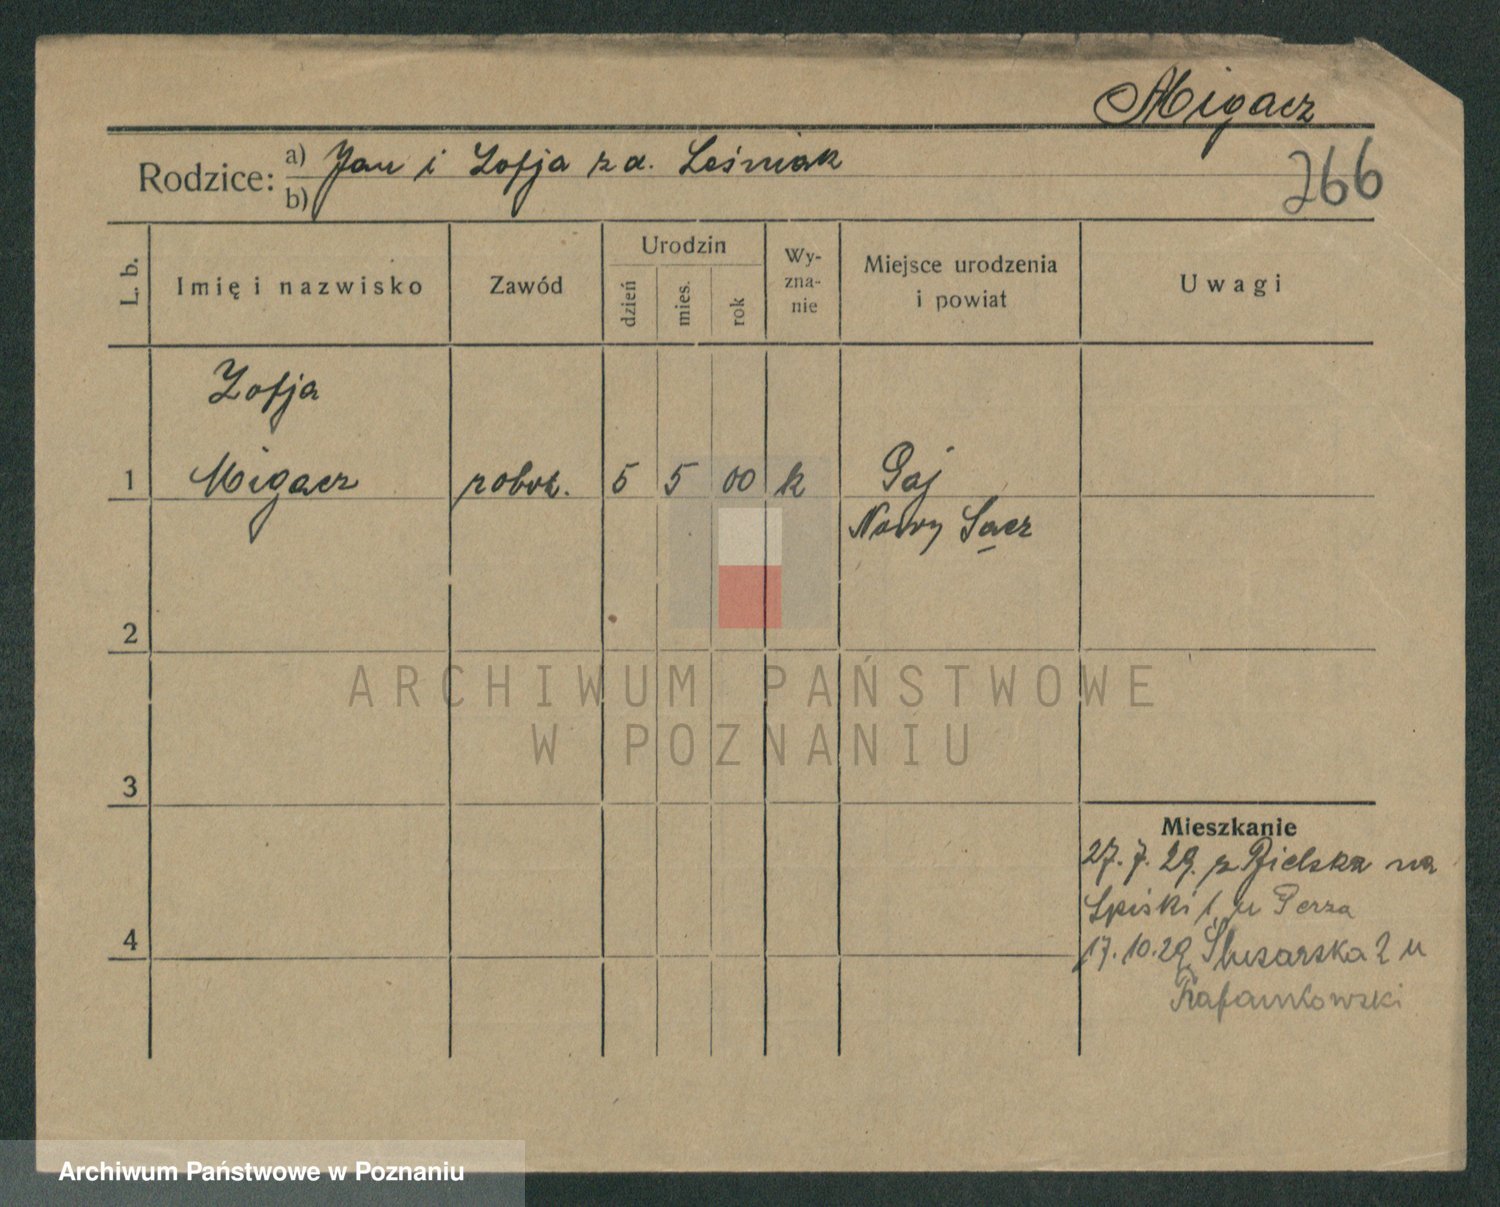 Migacz
Rodzice: a) Jan i Zofja z d. Leśniak
b)
266
L. b.
Imię i nazwisko
Zawód
Urodzin
dzień
mies.
rok
Wy-
zna-
nie
Miejsce urodzenia
i powiat
Uwagi
Zofja
1 Migacz robot. 5 5 00 k Gaj
Nowy Sącz
2
ARCHIWUM PAŃSTWOWE
W POZNANIU
3
Mieszkanie
27.7.29. z Bielska na
1 u Perza
4
17.10.29 Ślusarska 2 u
Archiwum Państwowe w Poznaniu